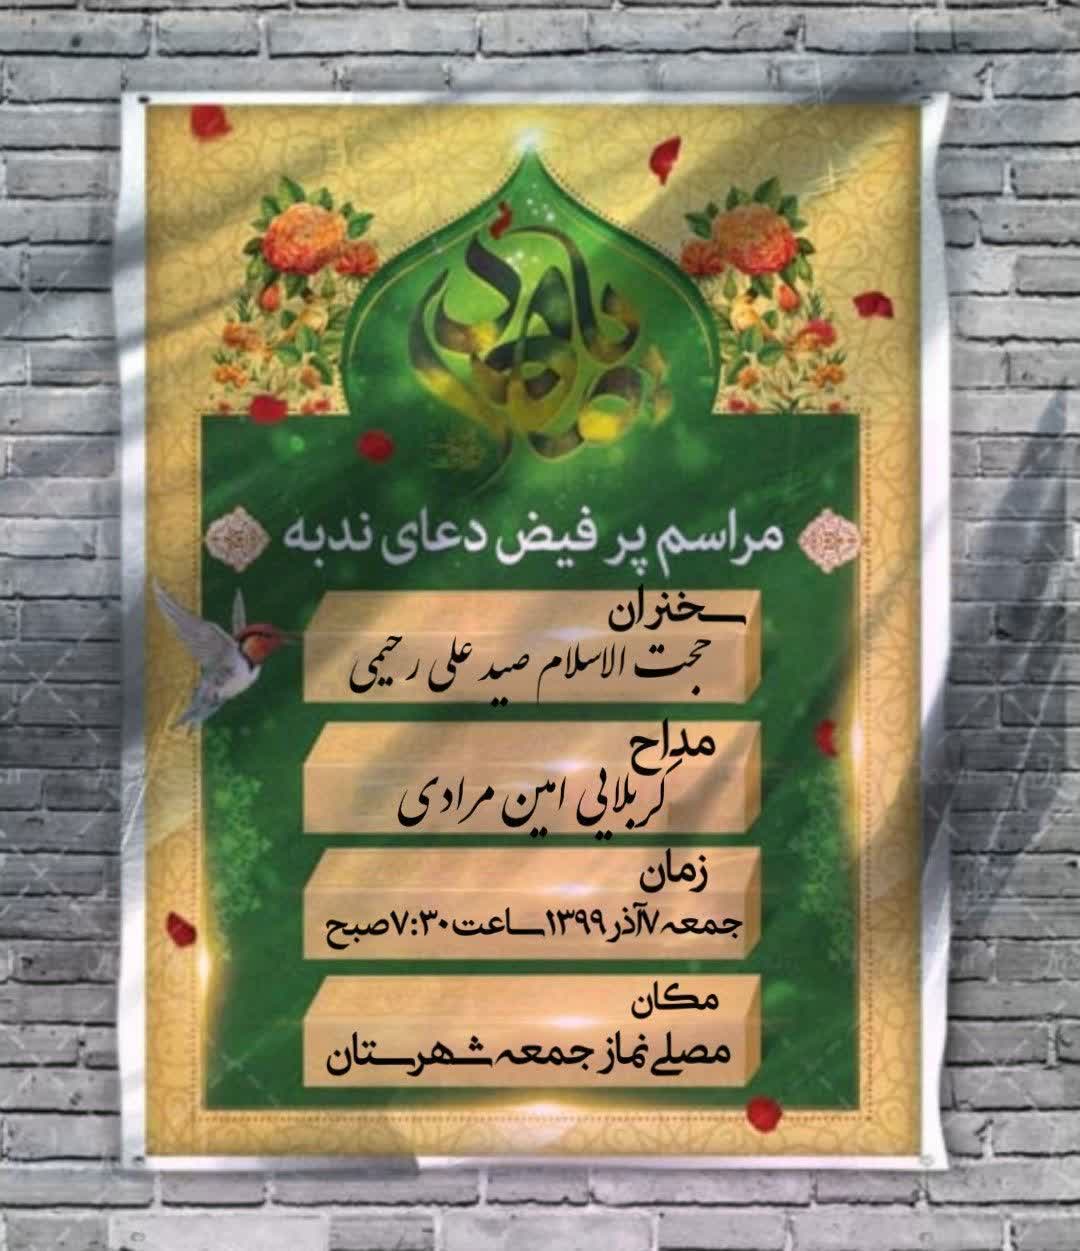 مراسم پر فیض دعای ندبه
سخنران
حجت الاسلام صید علی رحیمی
مداح
کربلایی امین مرادی
زمان
جمعه ۷آذر ۱۳۹۹ساعت۷:۳۰صبح
مکان
مصلے نماز جمعه شهرستان